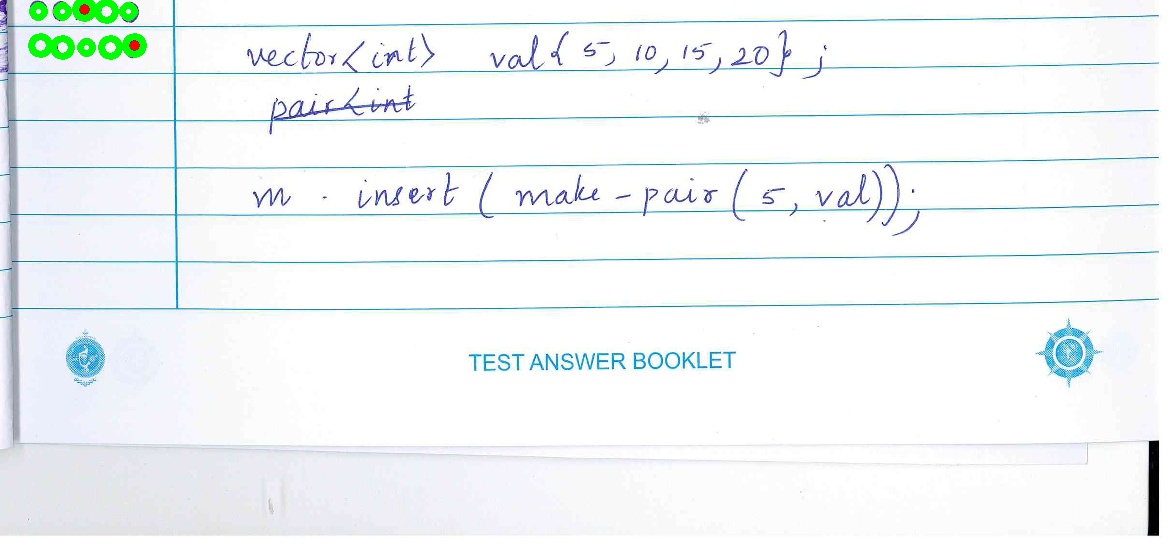 vector<int> val{ 5, 10, 15, 20};
pair<int
m . insert ( make-pair ( 5, val));
TEST ANSWER BOOKLET